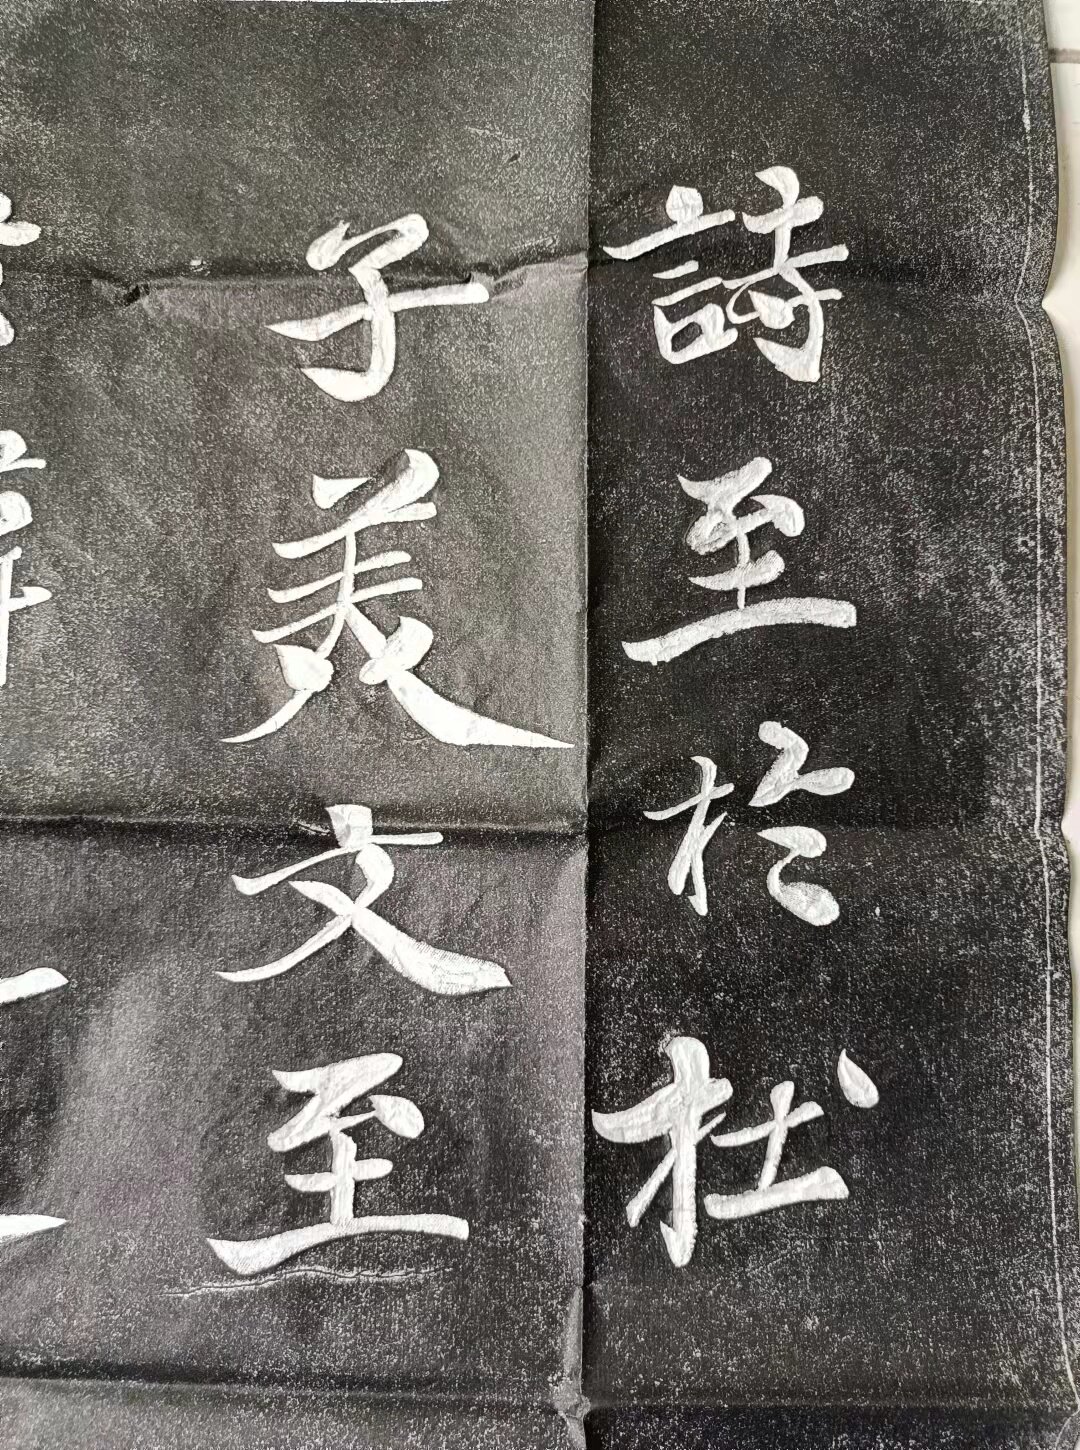 詩至於杜
子美文至